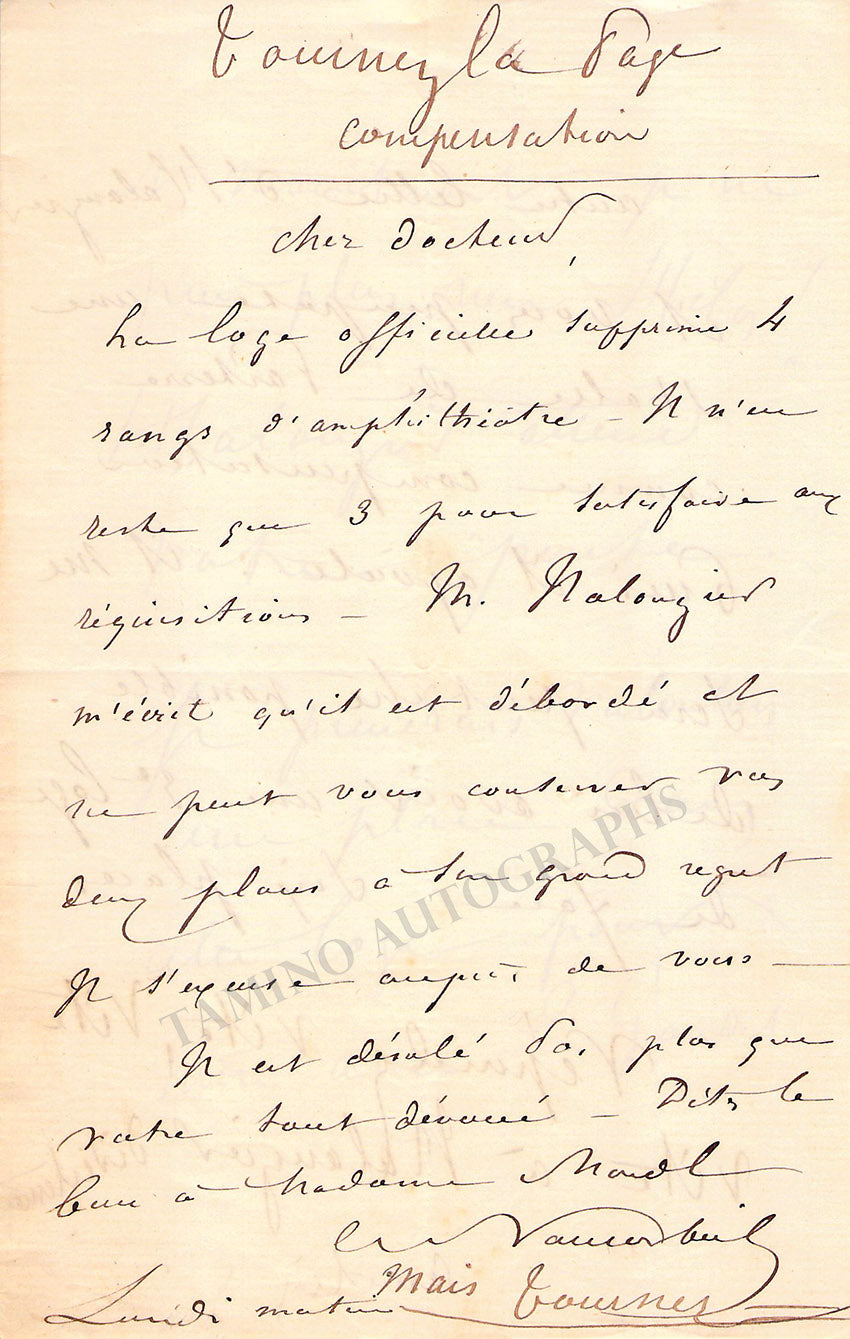 Tournez la Page
compensation
Cher Docteur,
La loge officielle supprime 4
rangs d'amphithéâtre – Il n'en
reste que 3 pour satisfaire aux
réquisitions – M. Halanzier
m'écrit qu'il est débordé et
ne peut vous conserver vos
deux places à son grand regret
Il s'excuse auprès de vous –
Il est désolé pas plus que
votre tout dévoué – Dites le
bien à Madame Mandl
Vaucorbeil
Mais Tournez
Lundi matin
TAMINO AUTOGRAPHS